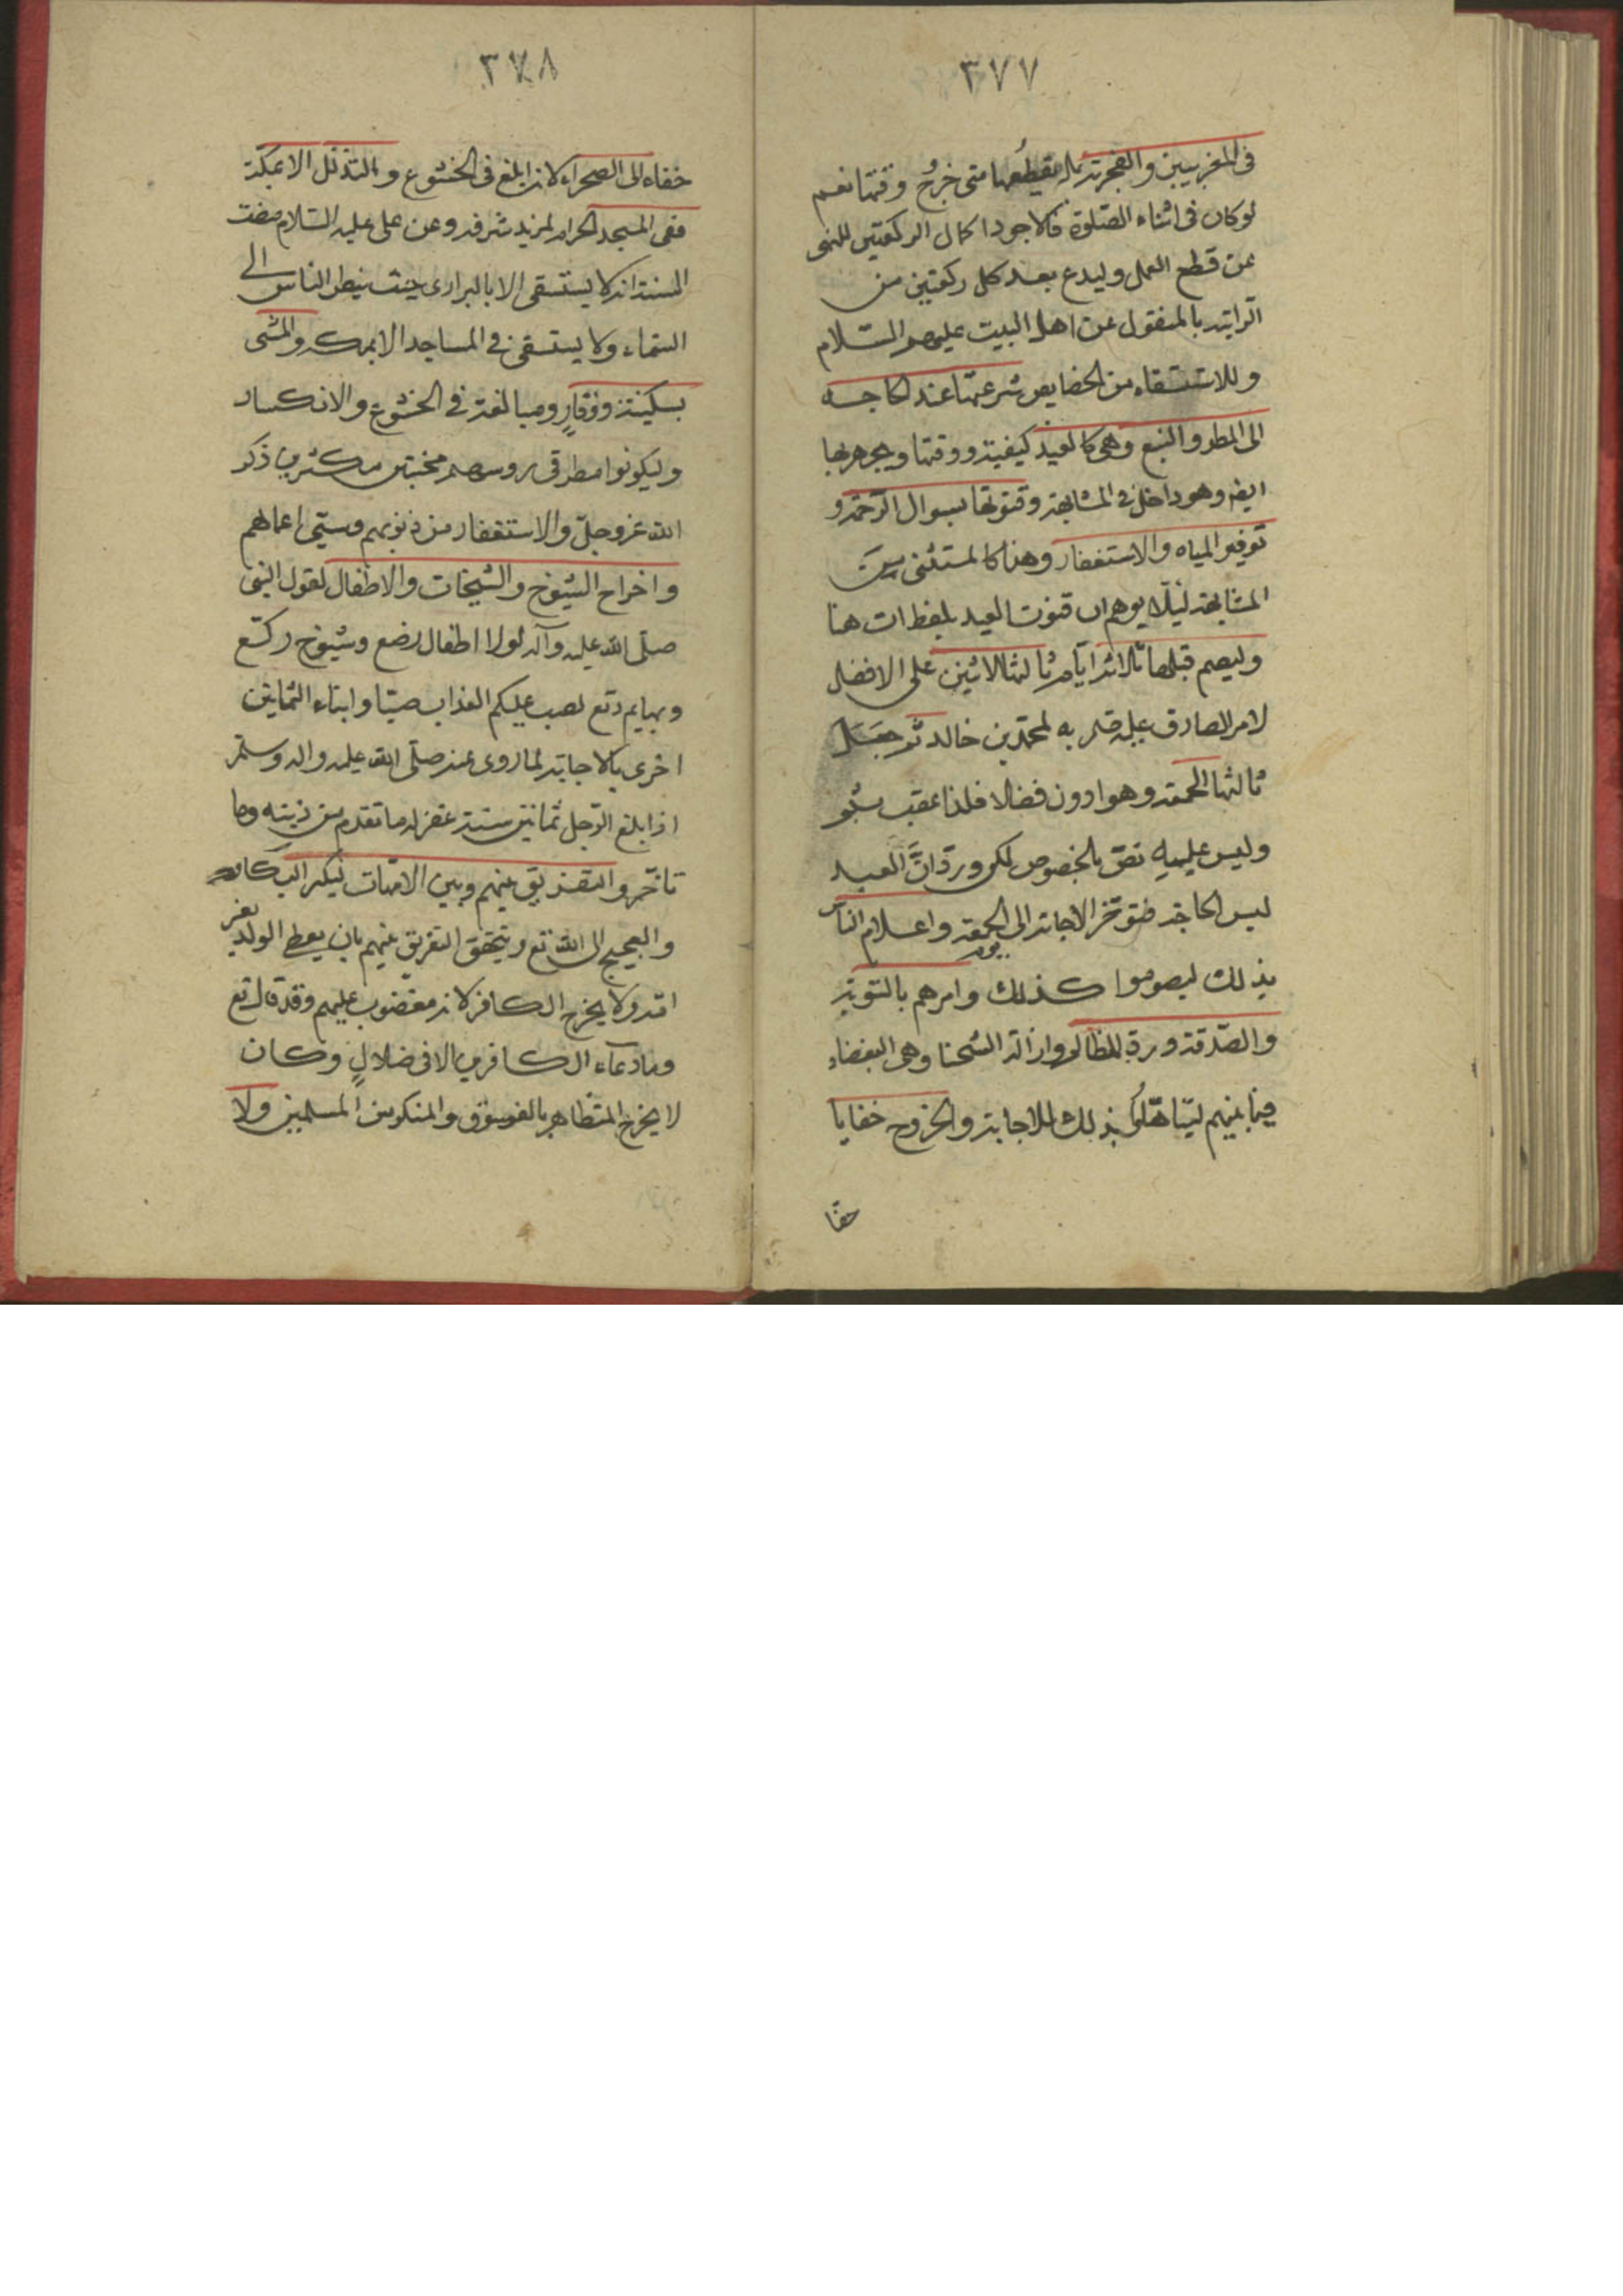 ٣٧٧
فى المغربين والفجرية بل يقطعها متى خرج وقتها نعم
لو كان فى اثناء الصلوة فالاجود اكمال الركعتين للنهى
عن قطع العمل وليدع بعد كل ركعتين من
الراتبة بالمنقول عن اهل البيت عليهم السلام
وللاستسقاء من الخصايص شرعيتها عند الحاجه
الى المطر والنبع وهى كالعيد كيفية ووقتا ويجهر بها
ايضا وهو داخل فى المشابهة وقنوتها بسوال الرحمة و
توفير المياه والاستغفار وهذا كالمستثنى من
المشابهة ليلا يوهم ان قنوت العيد بلفظ ات هنا
وليصم قبلها ثلاثة ايام ثالثها الاثنين على الافضل
لامر الصادق عليه به لمحمد بن خالد ثم جعل
ثالثها الجمعة وهو ادون فضلا فلذا عقب بثم
وليس عليه نص بالخصوص لكن ورد ان العبد
ليس الحاجة فتوخر الاجابة الى يوم الجمعة واعلام الناس
بذلك ليصوموا كذلك وامرهم بالتوبة
والصدقة ورد المظالم وازالة الشحنا وهى البغضاء
فيما بينهم ليتاهلوا بذلك للاجابة والخروج حفايا
حفا
٣٧٨
حفاء الى الصحراء لانه ابلغ فى الخشوع والتذلل الا بمكة
ففى المسجد الحرام لمزيد شرفه وعن على عليه السلام مضت
السنة انه لا يستسقى الا بالبرارى حيث ينظر الناس الى
السماء ولا يستسقى فى المساجد الا بمكه والمشى
بسكينة ووقار ومبالغة فى الخشوع والانكسار
وليكونوا مطرقى روسهم مخبتين مكثرين ذكر
الله عز وجل والاستغفار من ذنوبهم وسيئ اعمالهم
واخراج الشيوخ والشيخات والاطفال لقول النبى
صلى الله عليه وآله لولا اطفال رضع وشيوخ ركع
وبهايم رتع لصب عليكم العذاب صبا وابناء الثمانين
احرى بالاجابة لما روى عنه صلى الله عليه واله وسلم
اذا بلغ الرجل ثمانين سنة غفر له ما تقدم من ذنبه وما
تاخر والتفريق بينهم وبين الامهات ليكثر البكاء
والعجيج الى الله تع ويتحقق التفريق بينهم بان يعطى الولد لغير
امه ولا يخرج الكافر لانه مغضوب عليهم وقد قال تع
وما دعاء الكافرين الا فى ضلال وكان
لا يخرج المتظاهر بالفسوق والمنكر من المسلمين ولا